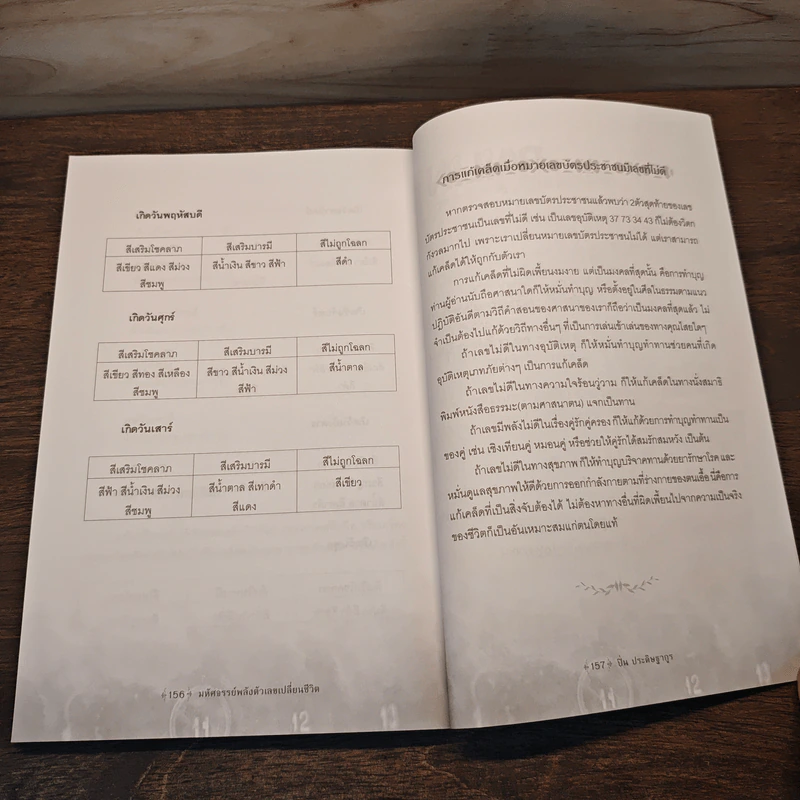 เกิดวันพฤหัสบดี
สีเสริมโชคลาภ สีเสริมบารมี สีไม่ถูกโฉลก
สีเขียว สีแดง สีม่วง สีน้ำเงิน สีขาว สีฟ้า สีดำ
สีชมพู
เกิดวันศุกร์
สีเสริมโชคลาภ สีเสริมบารมี สีไม่ถูกโฉลก
สีเขียว สีทอง สีเหลือง สีขาว สีน้ำเงิน สีม่วง สีน้ำตาล
สีชมพู สีฟ้า
เกิดวันเสาร์
สีเสริมโชคลาภ สีเสริมบารมี สีไม่ถูกโฉลก
สีฟ้า สีน้ำเงิน สีม่วง สีน้ำตาล สีเทาดำ สีเขียว
สีชมพู สีแดง
156 มหัศจรรย์พลังตัวเลขเปลี่ยนชีวิต
11 12 13
การแก้เคล็ดเมื่อหมายเลขบัตรประชาชนมีเลขที่ไม่ดี
หากตรวจสอบหมายเลขบัตรประชาชนแล้วพบว่า 2ตัวสุดท้ายของเลข
บัตรประชาชนเป็นเลขที่ไม่ดี เช่น เป็นเลขอุบัติเหตุ 37 73 34 43 ก็ไม่ต้องวิตก
กังวลมากไป เพราะเราเปลี่ยนหมายเลขบัตรประชาชนไม่ได้ แต่เราสามารถ
แก้เคล็ดได้ให้ถูกกับตัวเรา
การแก้เคล็ดที่ไม่ผิดเพี้ยนงมงาย แต่เป็นมงคลที่สุดนั้น คือการทำบุญ
ท่านผู้อ่านนับถือศาสนาใดก็ให้หมั่นทำบุญ หรือตั้งอยู่ในศีลในธรรมตามแนว
ปฏิบัติอันดีตามวิถีคำสอนของศาสนาของเราก็ถือว่าเป็นมงคลที่สุดแล้ว ไม่
จำเป็นต้องไปแก้ด้วยวิถีทางอื่นๆ ที่เป็นการเล่นเข้าเล่นของทางคุณไสยใดๆ
ถ้าเลขไม่ดีในทางอุบัติเหตุ ก็ให้หมั่นทำบุญทำทานช่วยคนที่เกิด
อุบัติเหตุเภทภัยต่างๆ เป็นการแก้เคล็ด
ถ้าเลขไม่ดีในทางความใจร้อนวู่วาม ก็ให้แก้เคล็ดในทางนั่งสมาธิ
พิมพ์หนังสือธรรมะ(ตามศาสนาตน) แจกเป็นทาน
ถ้าเลขมีพลังไม่ดีในเรื่องคู่รักคู่ครอง ก็ให้แก้ด้วยการทำบุญทำทานเป็น
ของคู่ เช่น เชิงเทียนคู่ หมอนคู่ หรือช่วยให้คู่รักได้สมรักสมหวัง เป็นต้น
ถ้าเลขไม่ดีในทางสุขภาพ ก็ให้ทำบุญบริจาคทานด้วยยารักษาโรค และ
หมั่นดูแลสุขภาพให้ดีด้วยการออกกำลังกายตามที่ร่างกายของตนเอื้อ นี่คือการ
แก้เคล็ดที่เป็นสิ่งจับต้องได้ ไม่ต้องหาทางอื่นที่ผิดเพี้ยนไปจากความเป็นจริง
ของชีวิตก็เป็นอันเหมาะสมแก่ตนโดยแท้
157 ปิ่น ประดิษฐากูร